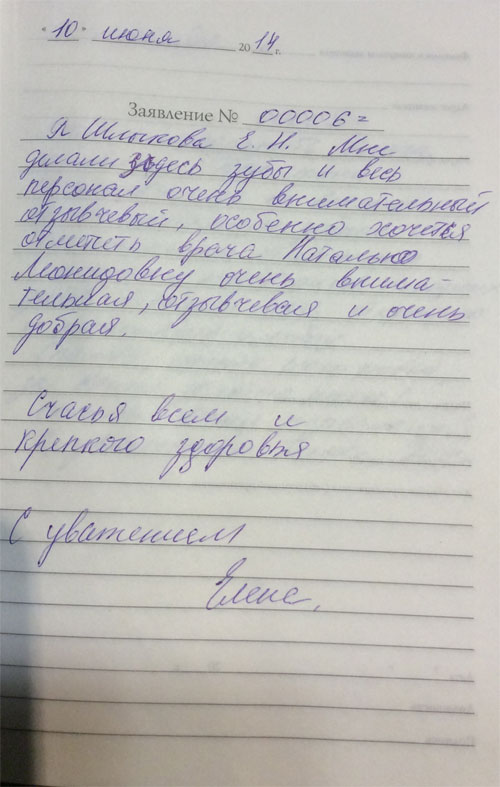 " 10 " июня 2014 г.
Заявление № 00006 =
Я Шлыкова Е. Н. Мне
делали здесь зубы и весь
персонал очень внимательный
отзывчевый, особенно хочется
отмететь врача Наталью
Леонидовну очень внима-
тельная, отзывчевая и очень
добрая.
Счастья всем и
крепкого здоровья
С уважением
Елена.